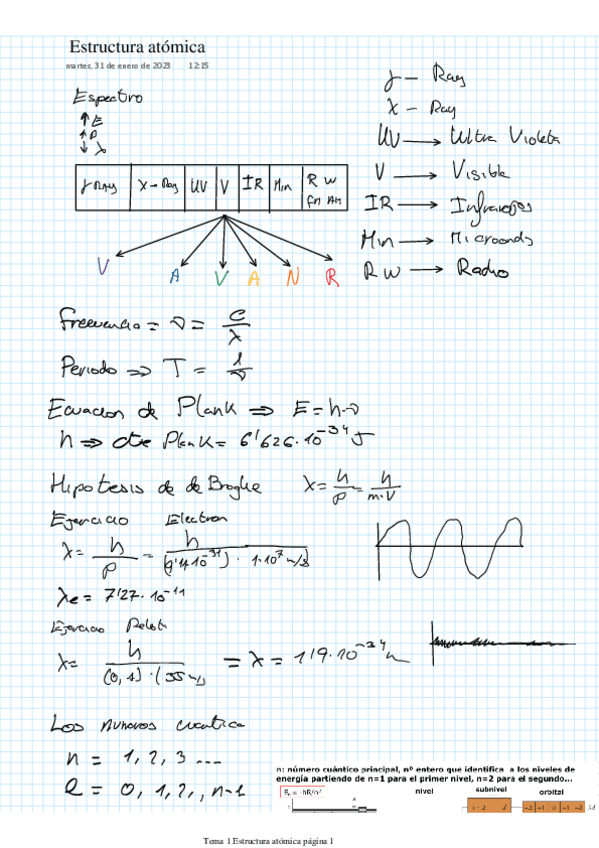 Estructura atómica
martes, 31 de enero de 2023 12:15
Espectro
↑ E
↑ ν
↓ λ
γ Ray X-Ray UV V IR Min R W
Fm Am
V A V A N R
γ – Ray
X – Ray
UV → Ultra Violeta
V → Visible
IR → Infrarojos
Min → Microonds
R W → Radio
Frecuencia = ν = c/λ
Periodo => T = 1/ν
Ecuacion de Plank => E = h·ν
h => cte Plank = 6'626·10^-34 J
Hipotesis de de Broglie λ = h/p = h/m·V
Ejercicio Electron
λ = h/p = h/(9'1·10^-31) · 1·10^7 m/s
λe = 7'27·10^-11
Ejercicio Pelota
λ = h/(0,1)·(35 m/s = λ = 1'19·10^-34 m
Los numeros cuantica
n = 1, 2, 3 ...
l = 0, 1, 2, , n-1
n: número cuántico principal, nº entero que identifica a los niveles de
energía partiendo de n=1 para el primer nivel, n=2 para el segundo...
nivel subnivel orbital
-2 -1 0 -1 -2
Tema 1 Estructura atómica página 1